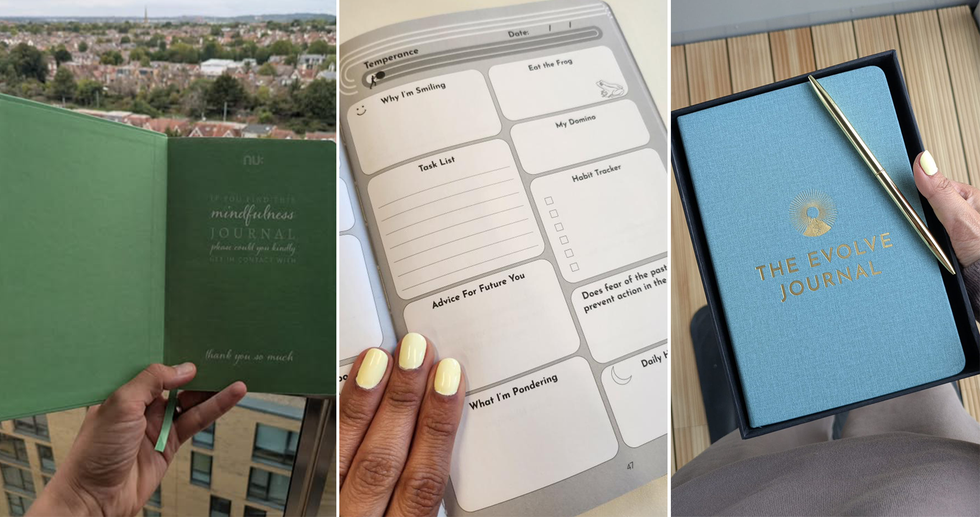 nu:
IF YOU FIND THIS
mindfulness
JOURNAL
please could you kindly
GET IN CONTACT WITH
thank you so much
Temperance
Date: / /
Why I'm Smiling
Eat the Frog
My Domino
Task List
Habit Tracker
Advice For Future You
Does fear of the past
prevent action in the
What I'm Pondering
Daily H
47
THE EVOLVE
JOURNAL